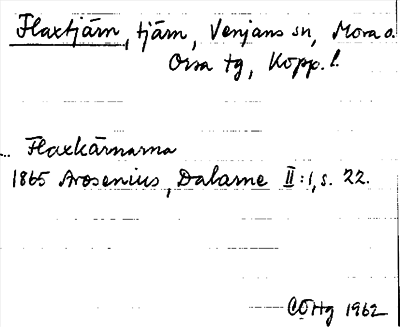 Flaxtjärn, tjärn, Venjans sn, Mora o.
Orsa tg, Kopp. l.
Flaxkärnarna
1865 Arosenius, Dalarne II:1, s. 22.
COHg 1962